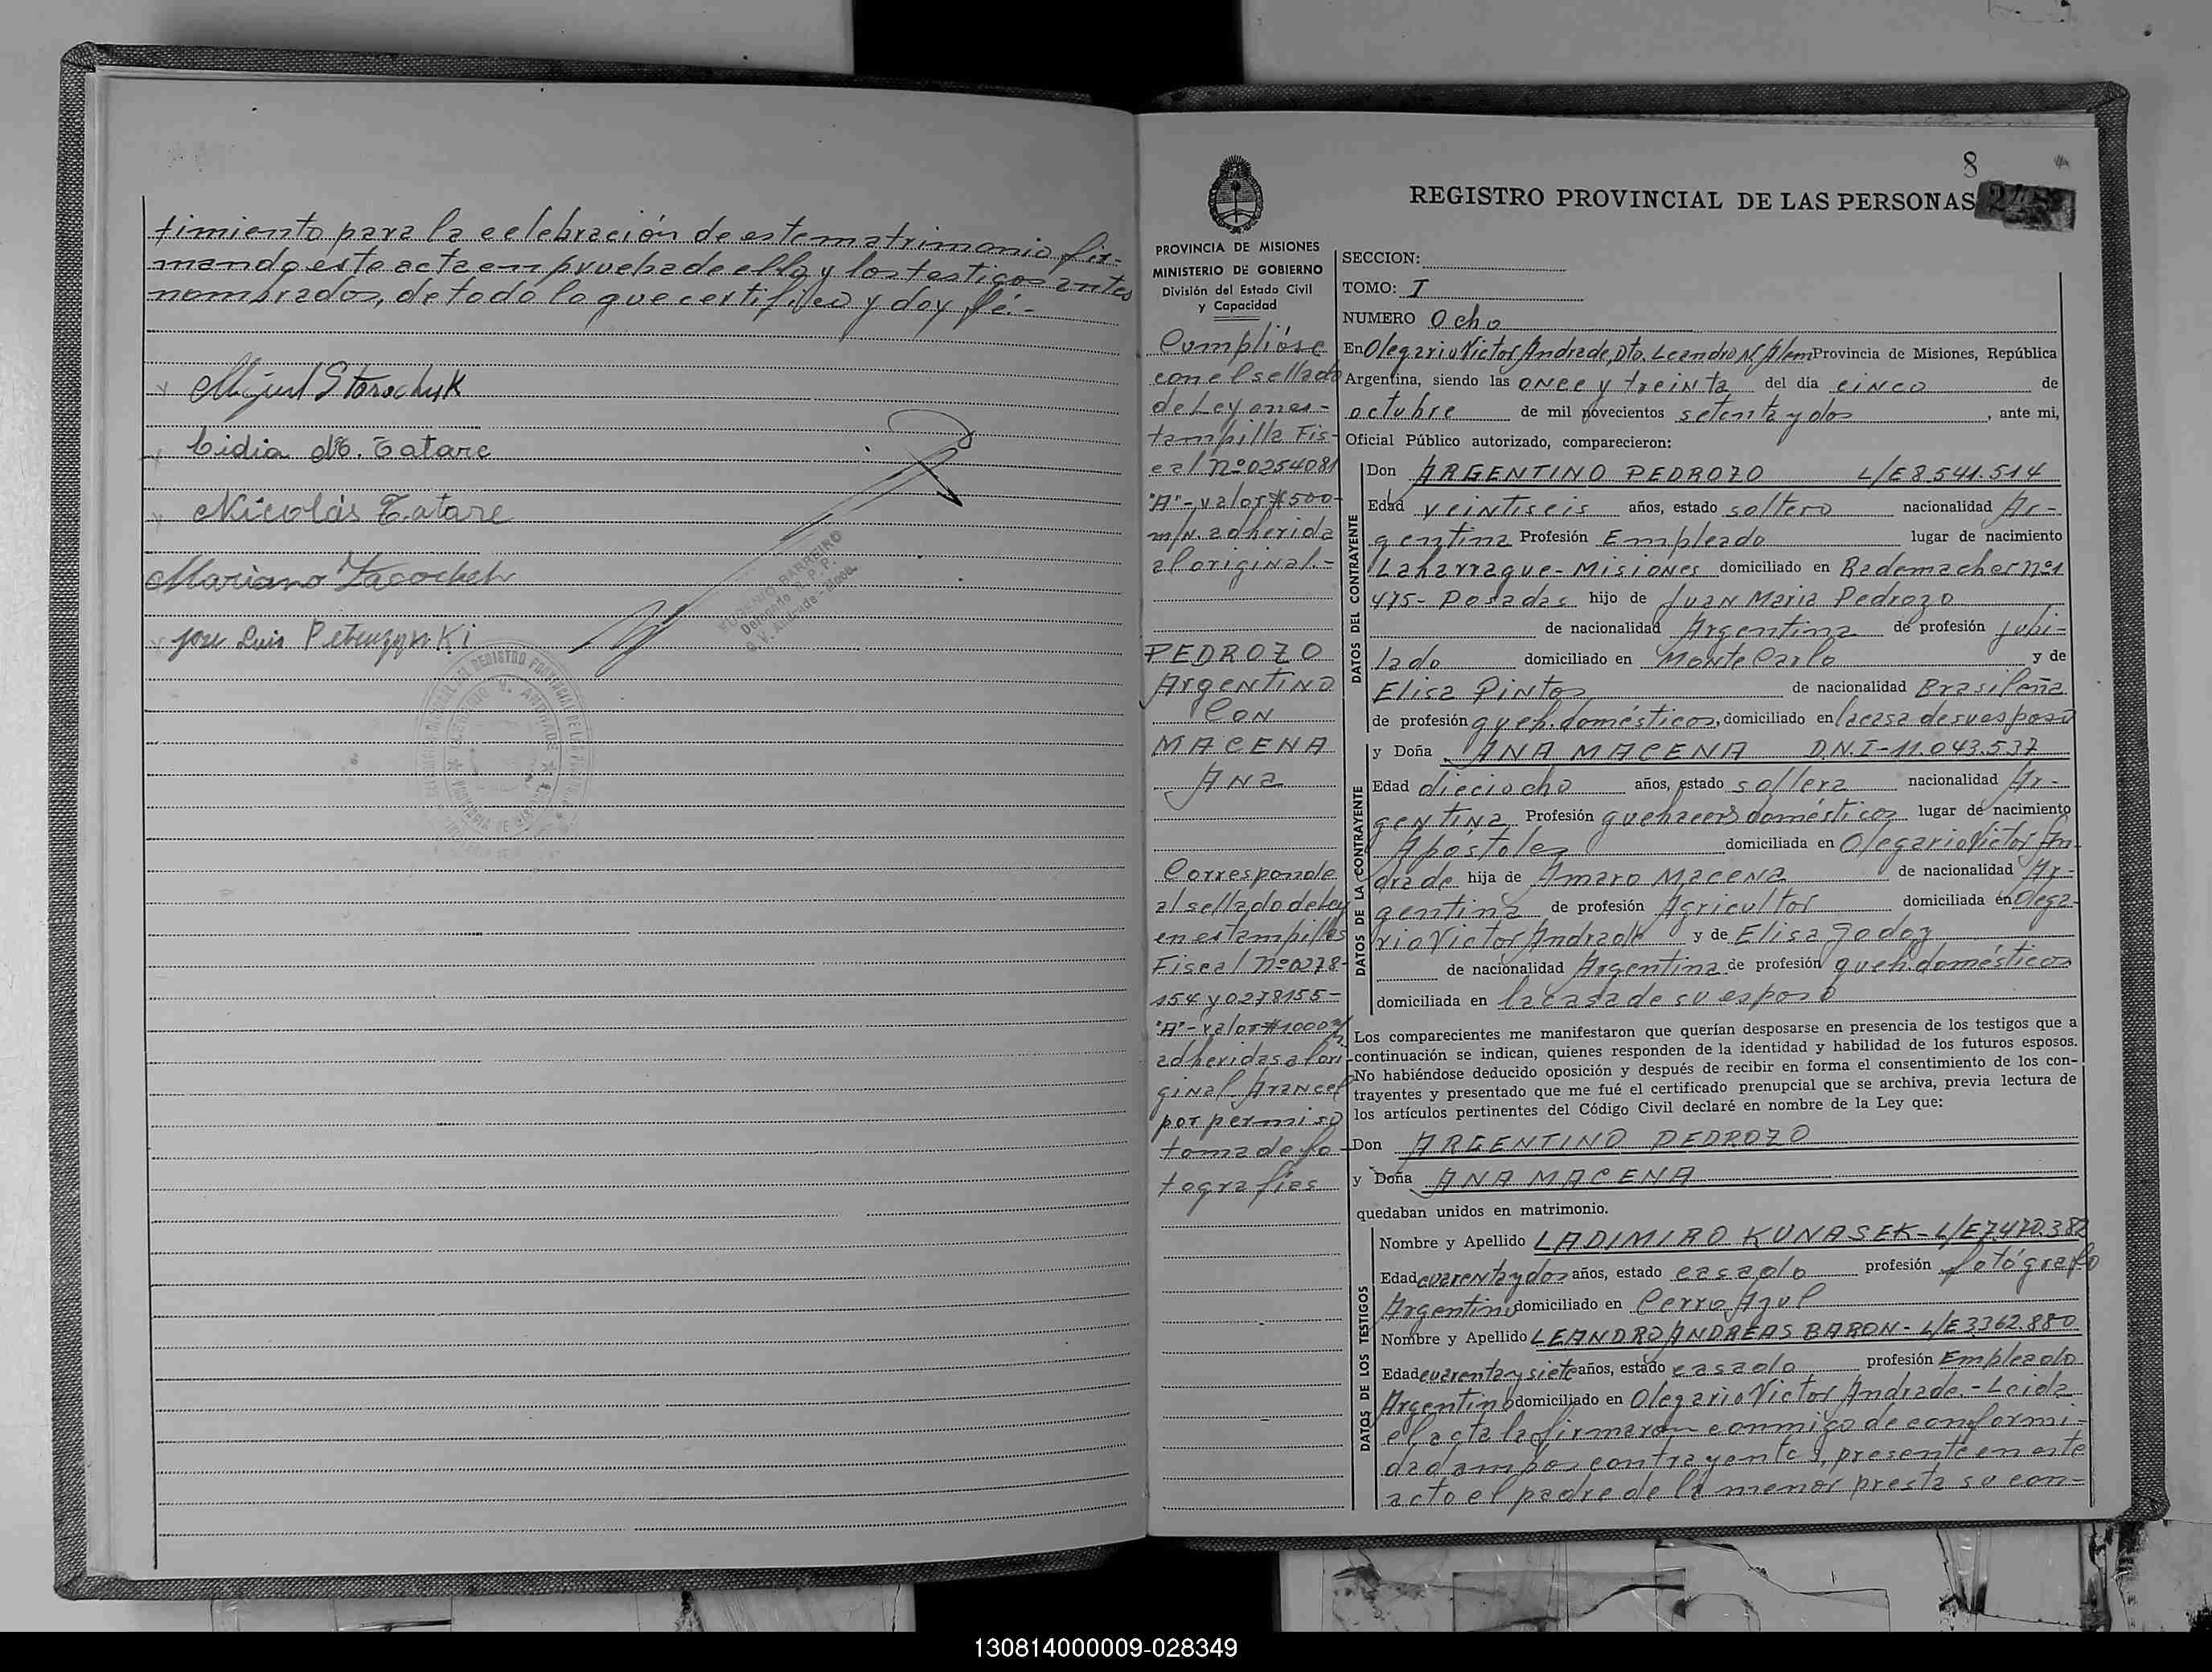 timiento para la celebración de este matrimonio fir-
mando este acta en prueba de ello y los testigos antes
nombrados, de todo lo que certifico y doy fé.-
Miguel Storochuk
Lidia M. Tatarc
Nicolás Tatarc
Mariano
José Luis
EUGENIO BARREIRO
Delegado R. P. P.
O. V. Andrade - Mnes.
8
REGISTRO PROVINCIAL DE LAS PERSONAS
PROVINCIA DE MISIONES
MINISTERIO DE GOBIERNO
División del Estado Civil
y Capacidad
Cumplióse
con el sellado
de Ley en es-
tampilla Fis-
cal Nº 0254081
"A"-valor $500-
m/n. adherida
al original.-
PEDROZO
Argentino
Con
MACENA
Ana
Corresponde
al sellado de Ley
en estampillas
Fiscal Nº 0278-
154 y 0278155-
"A"-valor $1000 m/n
adheridas al ori-
ginal Arancel
por permiso
toma de fo-
tografías
SECCION:
TOMO: I
NUMERO Ocho
En Olegario Victor Andrade, Dto. Leandro N. Alem Provincia de Misiones, República
Argentina, siendo las once y treinta del día cinco de
octubre de mil novecientos setenta y dos, ante mi,
Oficial Público autorizado, comparecieron:
DATOS DEL CONTRAYENTE
Don ARGENTINO PEDROZO L/E 8.541.514
Edad veintiseis años, estado soltero nacionalidad Ar-
gentina Profesión Empleado lugar de nacimiento
Laharrague-Misiones domiciliado en Rademacher nº1
475- Posadas hijo de Juan Maria Pedrozo
de nacionalidad Argentina de profesión jubi-
lado domiciliado en Monte Carlo y de
Elisa Pintos de nacionalidad Brasileña
de profesión queh. domésticos, domiciliado en la casa de su esposo
DATOS DE LA CONTRAYENTE
y Doña ANA MACENA D.N.I-11.043.537
Edad dieciocho años, estado soltera nacionalidad Ar-
gentina Profesión quehaceres domésticos lugar de nacimiento
Apóstoles domiciliada en Olegario Victor An-
drade hija de Amaro Macena de nacionalidad Ar-
gentina de profesión Agricultor domiciliada en Olega-
rio Victor Andrade y de Elisa Godoy
de nacionalidad Argentina de profesión queh. domésticos
domiciliada en la casa de su esposo
Los comparecientes me manifestaron que querían desposarse en presencia de los testigos que a
continuación se indican, quienes responden de la identidad y habilidad de los futuros esposos.
No habiéndose deducido oposición y después de recibir en forma el consentimiento de los con-
trayentes y presentado que me fué el certificado prenupcial que se archiva, previa lectura de
los artículos pertinentes del Código Civil declaré en nombre de la Ley que:
Don ARGENTINO PEDROZO
y Doña ANA MACENA
quedaban unidos en matrimonio.
DATOS DE LOS TESTIGOS
Nombre y Apellido LADIMIRO KUNASEK-L/E 7.470.382
Edad cuarenta y dos años, estado casado profesión fotógrafo
Argentino domiciliado en Cerro Azul
Nombre y Apellido LEANDRO ANDREAS BARON- L/E 3362.880
Edad cuarenta y siete años, estado casado profesión Empleado
Argentino domiciliado en Olegario Victor Andrade.-Leida
el acta la firmaron conmigo de conformi-
dad ambos contrayentes, presente en este
acto el padre de la menor presta su con-
130814000009-028349